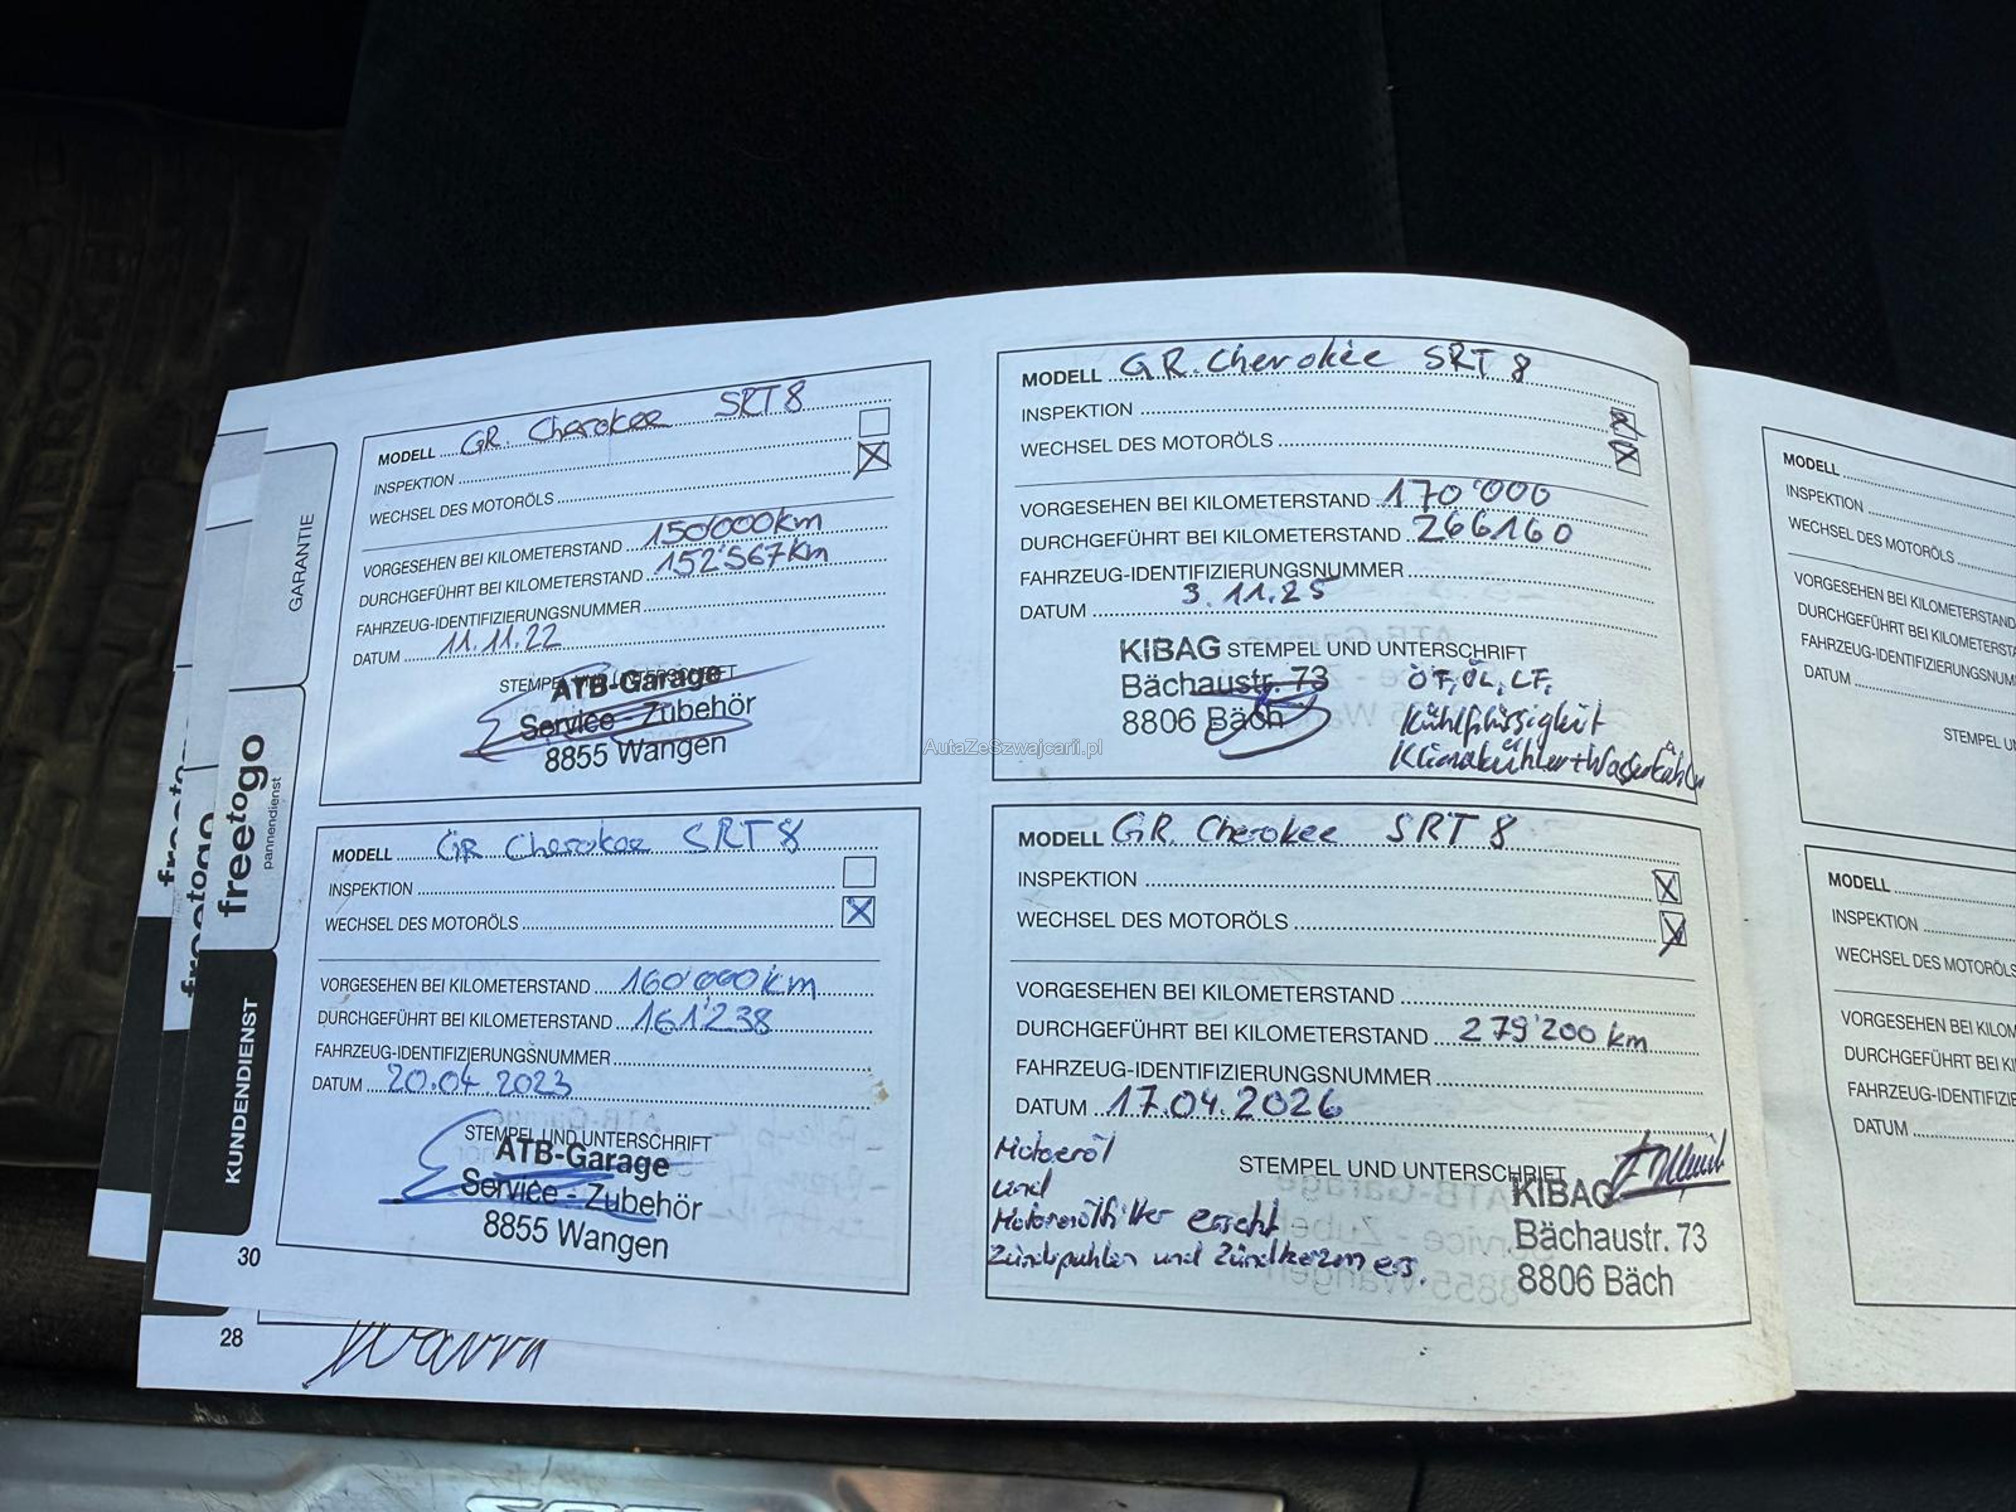 GARANTIE
freetogo
pannendienst
KUNDENDIENST
30
28
MODELL GR. Cherokee SRT8
INSPEKTION
WECHSEL DES MOTORÖLS
VORGESEHEN BEI KILOMETERSTAND 150'000km
DURCHGEFÜHRT BEI KILOMETERSTAND 152'567km
FAHRZEUG-IDENTIFIZIERUNGSNUMMER
DATUM 11.11.22
STEMPEL UND UNTERSCHRIFT
ATB-Garage
Service - Zubehör
8855 Wangen
MODELL GR Cherokee SRT8
INSPEKTION
WECHSEL DES MOTORÖLS
VORGESEHEN BEI KILOMETERSTAND 160'000km
DURCHGEFÜHRT BEI KILOMETERSTAND 161'238
FAHRZEUG-IDENTIFIZIERUNGSNUMMER
DATUM 20.04.2023
STEMPEL UND UNTERSCHRIFT
ATB-Garage
Service - Zubehör
8855 Wangen
MODELL GR. Cherokee SRT 8
INSPEKTION
WECHSEL DES MOTORÖLS
VORGESEHEN BEI KILOMETERSTAND 170'000
DURCHGEFÜHRT BEI KILOMETERSTAND 266160
FAHRZEUG-IDENTIFIZIERUNGSNUMMER
DATUM 3.11.25
KIBAG STEMPEL UND UNTERSCHRIFT
Bächaustr. 73 ÖF, ÖL, LF,
8806 Bäch Kühlflüssigkeit
Klimakühler+Wasserkühler
AutaZeSzwajcarii.pl
MODELL GR. Cherokee SRT 8
INSPEKTION
WECHSEL DES MOTORÖLS
VORGESEHEN BEI KILOMETERSTAND
DURCHGEFÜHRT BEI KILOMETERSTAND 279'200 km
FAHRZEUG-IDENTIFIZIERUNGSNUMMER
DATUM 17.04.2026
Motoröl
und
STEMPEL UND UNTERSCHRIFT
KIBAG
Bächaustr. 73
8806 Bäch
und Zündkerzen ers.
MODELL
INSPEKTION
WECHSEL DES MOTORÖLS
VORGESEHEN BEI KILOMETERSTAND
DURCHGEFÜHRT BEI KILOMETERST
FAHRZEUG-IDENTIFIZIERUNGSNUM
DATUM
STEMPEL U
MODELL
INSPEKTION
WECHSEL DES MOTORÖLS
VORGESEHEN BEI KILOM
DURCHGEFÜHRT BEI KI
FAHRZEUG-IDENTIFIZIE
DATUM